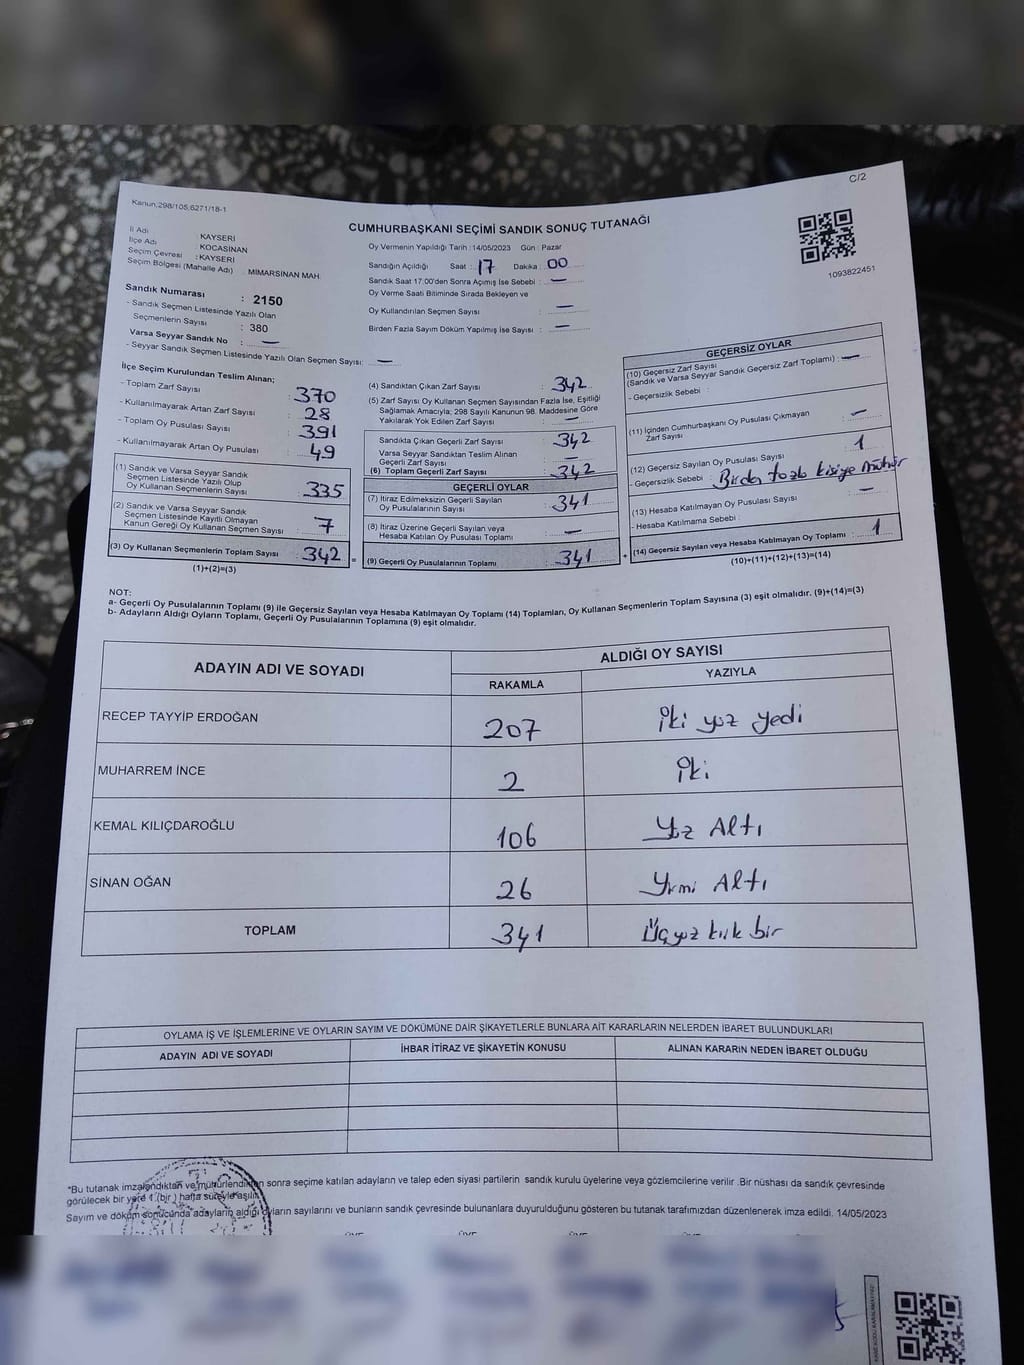 C/2
Kanun.298/105,6271/18-1
CUMHURBAŞKANI SEÇİMİ SANDIK SONUÇ TUTANAĞI
1093822451
İl Adı : KAYSERİ
İlçe Adı : KOCASİNAN
Seçim Çevresi : KAYSERİ
Seçim Bölgesi (Mahalle Adı) : MİMARSİNAN MAH.
Sandık Numarası : 2150
- Sandık Seçmen Listesinde Yazılı Olan
Seçmenlerin Sayısı : 380
Varsa Seyyar Sandık No : —
- Seyyar Sandık Seçmen Listesinde Yazılı Olan Seçmen Sayısı: —
Oy Vermenin Yapıldığı Tarih : 14/05/2023 Gün : Pazar
Sandığın Açıldığı Saat : 17 Dakika : 00
Sandık Saat 17:00'den Sonra Açımış İse Sebebi : —
Oy Verme Saati Bitiminde Sırada Bekleyen ve
Oy Kullandırılan Seçmen Sayısı : —
Birden Fazla Sayım Döküm Yapılmış İse Sayısı : —
İlçe Seçim Kurulundan Teslim Alınan;
- Toplam Zarf Sayısı : 370
- Kullanılmayarak Artan Zarf Sayısı : 28
- Toplam Oy Pusulası Sayısı : 391
- Kullanılmayarak Artan Oy Pusulası : 49
(1) Sandık ve Varsa Seyyar Sandık
Seçmen Listesinde Yazılı Olup
Oy Kullanan Seçmenlerin Sayısı : 335
(2) Sandık ve Varsa Seyyar Sandık
Seçmen Listesinde Kayıtlı Olmayan
Kanun Gereği Oy Kullanan Seçmen Sayısı : 7
(3) Oy Kullanan Seçmenlerin Toplam Sayısı : 342
(1)+(2)=(3)
(4) Sandıktan Çıkan Zarf Sayısı : 342
(5) Zarf Sayısı Oy Kullanan Seçmen Sayısından Fazla İse, Eşitliği
Sağlamak Amacıyla; 298 Sayılı Kanunun 98. Maddesine Göre
Yakılarak Yok Edilen Zarf Sayısı : —
Sandıkta Çıkan Geçerli Zarf Sayısı : 342
Varsa Seyyar Sandıktan Teslim Alınan
Geçerli Zarf Sayısı : —
(6) Toplam Geçerli Zarf Sayısı : 342
GEÇERLİ OYLAR
(7) İtiraz Edilmeksizin Geçerli Sayılan
Oy Pusulalarının Sayısı : 341
(8) İtiraz Üzerine Geçerli Sayılan veya
Hesaba Katılan Oy Pusulası Toplamı : —
= (9) Geçerli Oy Pusulalarının Toplamı : 341
GEÇERSİZ OYLAR
(10) Geçersiz Zarf Sayısı
(Sandık ve Varsa Seyyar Sandık Geçersiz Zarf Toplamı) : —
- Geçersizlik Sebebi :
(11) İçinden Cumhurbaşkanı Oy Pusulası Çıkmayan
Zarf Sayısı : —
(12) Geçersiz Sayılan Oy Pusulası Sayısı : 1
- Geçersizlik Sebebi : Birden fazla kişiye mühür
(13) Hesaba Katılmayan Oy Pusulası Sayısı : —
- Hesaba Katılmama Sebebi :
+ (14) Geçersiz Sayılan veya Hesaba Katılmayan Oy Toplamı : 1
(10)+(11)+(12)+(13)=(14)
NOT:
a- Geçerli Oy Pusulalarının Toplamı (9) ile Geçersiz Sayılan veya Hesaba Katılmayan Oy Toplamı (14) Toplamları, Oy Kullanan Seçmenlerin Toplam Sayısına (3) eşit olmalıdır. (9)+(14)=(3)
b- Adayların Aldığı Oyların Toplamı, Geçerli Oy Pusulalarının Toplamına (9) eşit olmalıdır.
ADAYIN ADI VE SOYADI
ALDIĞI OY SAYISI
RAKAMLA YAZIYLA
RECEP TAYYİP ERDOĞAN 207 İki yüz yedi
MUHARREM İNCE 2 İki
KEMAL KILIÇDAROĞLU 106 Yüz Altı
SİNAN OĞAN 26 Yirmi Altı
TOPLAM 341 Üçyüz kırk bir
OYLAMA İŞ VE İŞLEMLERİNE VE OYLARIN SAYIM VE DÖKÜMÜNE DAİR ŞİKAYETLERLE BUNLARA AİT KARARLARIN NELERDEN İBARET BULUNDUKLARI
ADAYIN ADI VE SOYADI İHBAR İTİRAZ VE ŞİKAYETİN KONUSU ALINAN KARARIN NEDEN İBARET OLDUĞU
*Bu tutanak imzalandıktan ve mühürlendikten sonra seçime katılan adayların ve talep eden siyasi partilerin sandık kurulu üyelerine veya gözlemcilerine verilir .Bir nüshası da sandık çevresinde
görülecek bir yere 1 (bir ) hafta süreyle asılır.
Sayım ve döküm sonucunda adayların aldığı oyların sayılarını ve bunların sandık çevresinde bulunanlara duyurulduğunu gösteren bu tutanak tarafımızdan düzenlenerek imza edildi. 14/05/2023